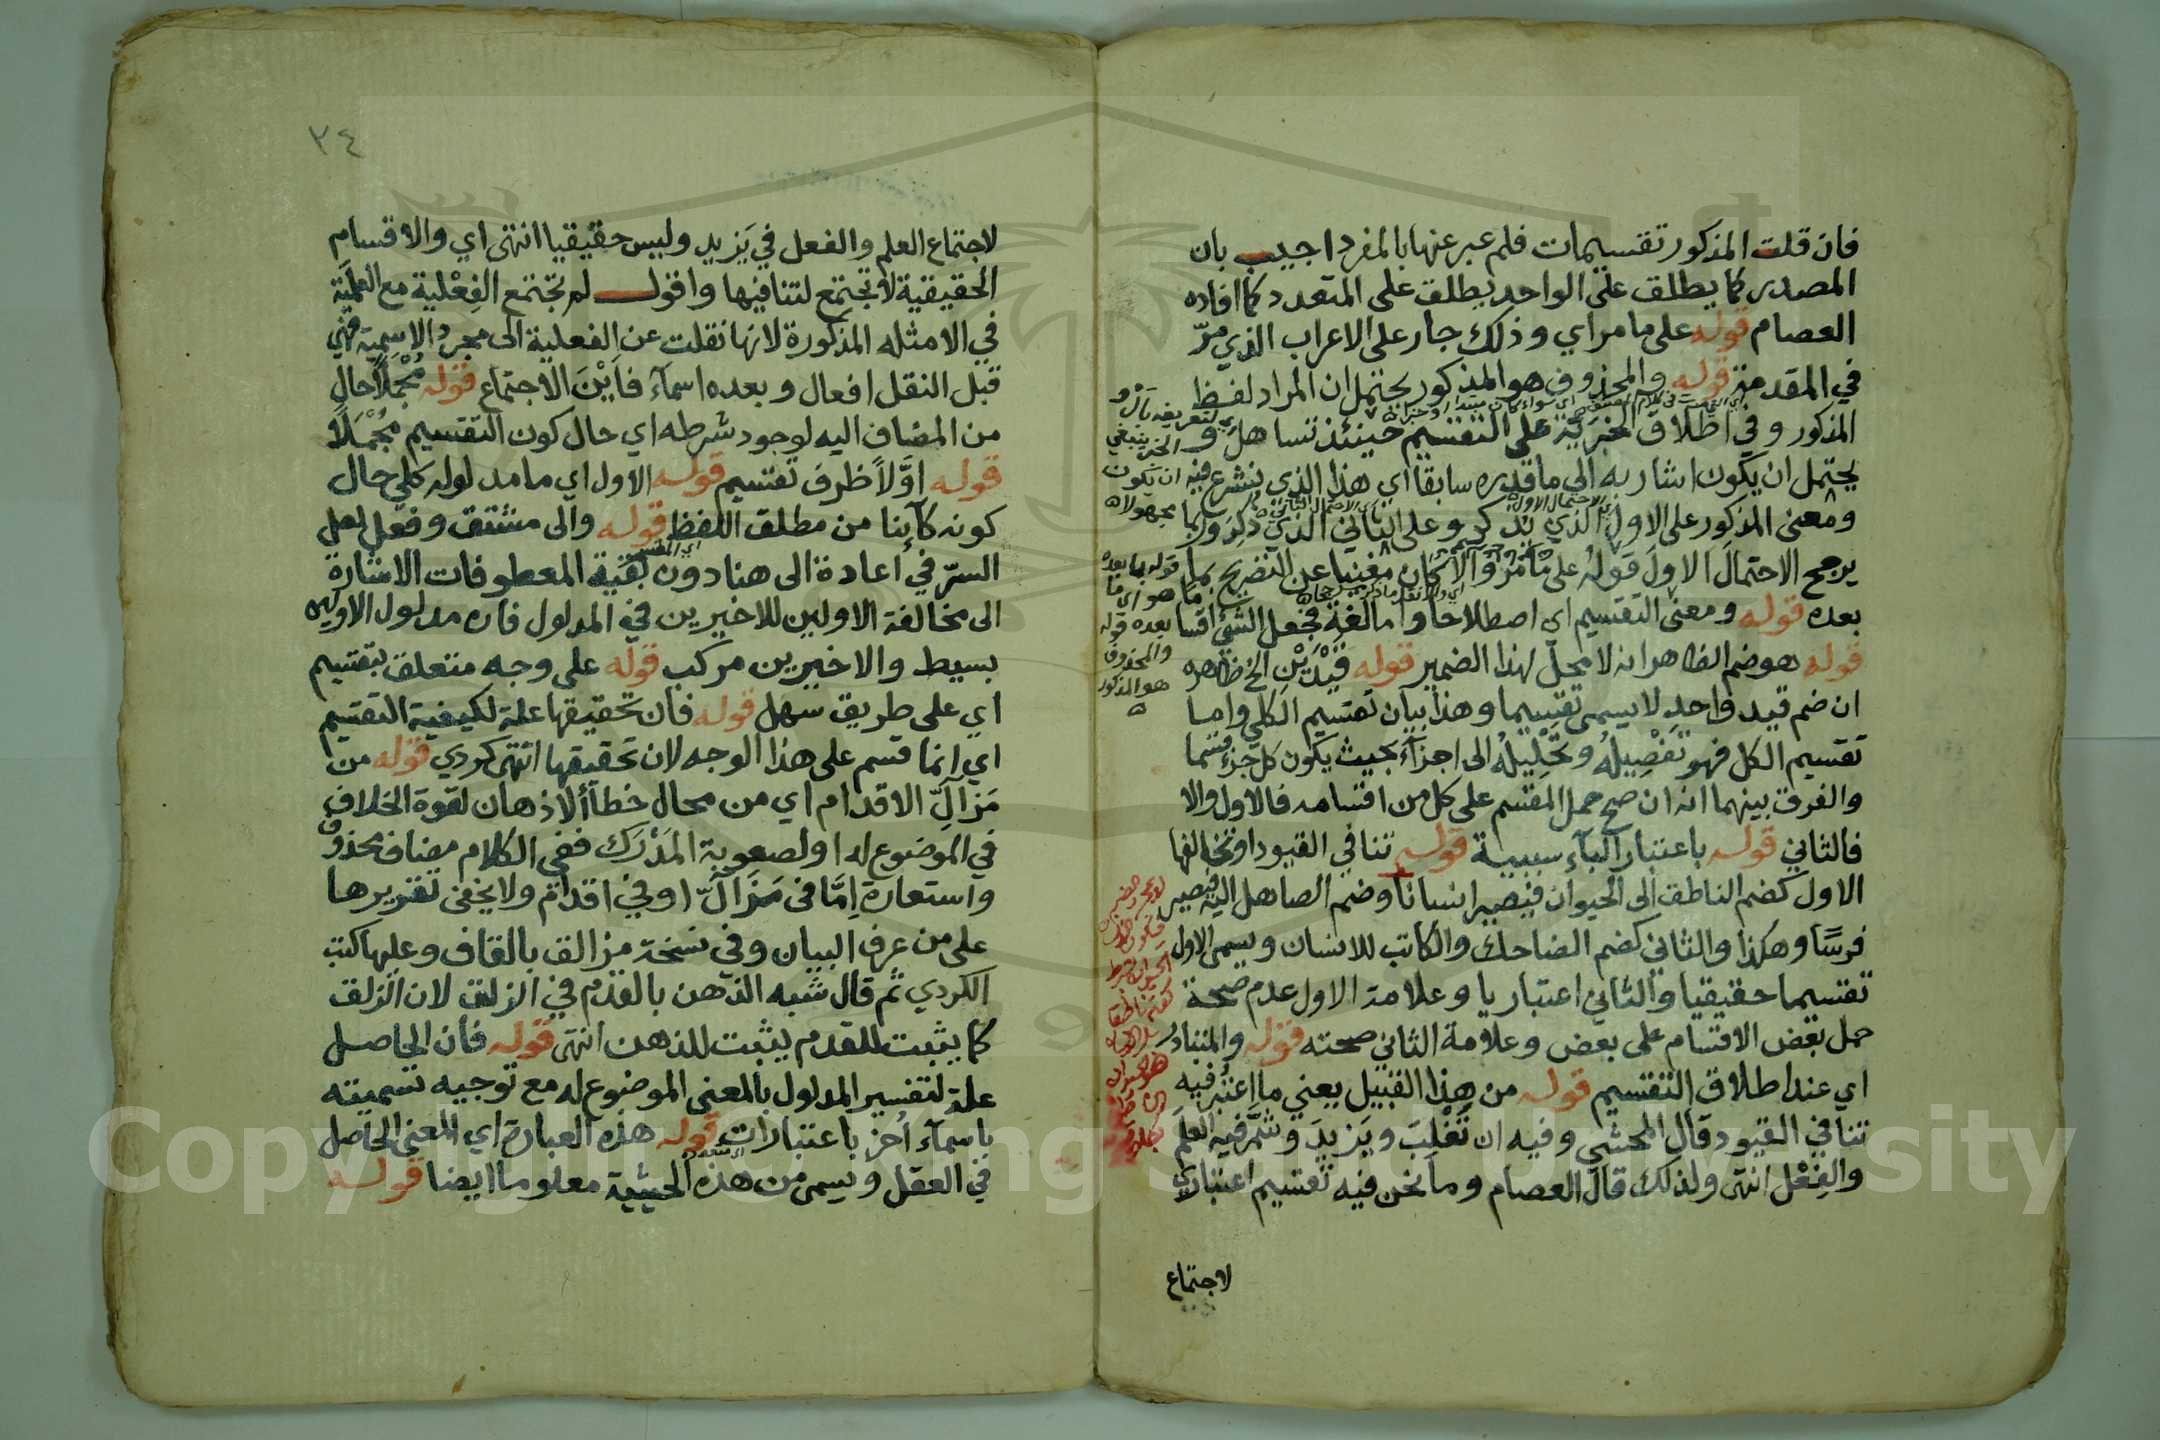 فان قلت المذكور تقسيمات فلم عبر عنها بالمفرد اجيب بان
المصدر كما يطلق على الواحد يطلق على المتعدد كما افاده
العصام قوله على ما مر اي وذلك جار على الاعراب الذي مرّ
في المقدمة قوله والمحذوف هو المذكور يحتمل ان المراد لفظ
المذكور وفي اطلاق الخبرية على التقسيم حينئذ تساهل و
يحتمل ان يكون اشار به الى ما قدره سابقا اي هذا الذي نشرع فيه
ومعنى المذكور على الاول الذي يذكر وعلى الثاني الذي ذكر وربما
يرجح الاحتمال الاول قوله على ما مر والا لكان مغنيا عن التصريح بما
بعده قوله ومعنى التقسيم اي اصطلاحا واما لغة فجعل الشئ اقسا
قوله هو ضم الظاهر انه لا محل لهذا الضمير قوله قيدين الخ ظاهره
ان ضم قيد واحد لا يسمى تقسيما وهذا بيان تقسيم الكلي واما
تقسيم الكل فهو تفصيله وتحليله الى اجزآء بحيث يكون كل جزء قسما
والفرق بينهما انه ان صح حمل المقسم على كل من اقسامه فالاول والا
فالثاني قوله باعتبار الباء سببية قوله تنافي القيود او تخالفها
الاول كضم الناطق الى الحيوان فيصير انسانا وضم الصاهل اليه فيصير
فرسًا وهكذا والثاني كضم الضاحك والكاتب للانسان ويسمى الاول
تقسيما حقيقيا والثاني اعتباريا وعلامة الاول عدم صحة
حمل بعض الاقسام على بعض وعلامة الثاني صحته قوله والمتبادر
اي عند اطلاق التقسيم قوله من هذا القبيل يعني ما اعتبر فيه
تنافي القيود قال المحشي وفيه ان تغلب ويزيد وشمر فيه العلم
والفعل انتهى ولذلك قال العصام وما نحن فيه تقسيم اعتباري
لاجتماع
والمحذوف
هو المذكور
٣٤
لاجتماع العلم والفعل في يزيد وليس حقيقيا انتهى اي والاقسام
الحقيقية لا تجتمع لتنافيها واقول لم تجتمع الفعلية مع العلمية
في الامثله المذكورة لانها نقلت عن الفعلية الى مجرد الاسمية فهي
قبل النقل افعال وبعده اسمآء فاين الاجتماع قوله مجملا حال
من المضاف اليه لوجود شرطه اي حال كون التقسيم مجملًا
قوله اوّلاً ظرف تقسيم قوله الاول اي ما مدلوله كلي حال
كونه كآينا من مطلق اللفظ قوله والى مشتق وفعل لعل
السرّ في اعادة الى هنا دون بقية المعطوفات الاشارة
الى مخالفة الاولين للاخيرين في المدلول فان مدلول الاولين
بسيط والاخيرين مركب قوله على وجه متعلق بتقسيم
اي على طريق سهل قوله فان تحقيقها علة لكيفية التقسيم
اي انما قسم على هذا الوجه لان تحقيقها انتهى كردي قوله من
مزالّ الاقدام اي من محال خطأ الاذهان لقوة الخلاف
في الموضوع له او لصعوبة المدرك ففي الكلام مضاف محذوف
واستعارة إمّا في مزالّ او في اقدام ولا يخفى تقريرها
على من عرف البيان وفي نسخة مزالق بالقاف وعليها كتب
الكردي ثم قال شبه الذهن بالقدم في الزلق لان الزلق
كما يثبت للقدم يثبت للذهن انتهى قوله فان الحاصل
علة لتفسير المدلول بالمعنى الموضوع له مع توجيه تسميته
باسمآء أخر باعتبارات قوله هذه العبارة اي المعنى الحاصل
في العقل ويسمى من هذه الحيثية معلوما ايضا قوله
Copyright © King Saud University